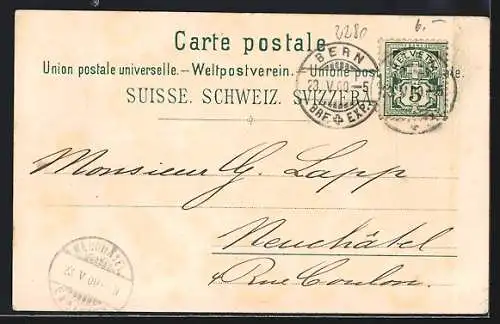 2280
6.-
Carte postale.
Union postale universelle. — Weltpostverein. — Unione postale
SUISSE. SCHWEIZ. SVIZZERA.
BERN
23. V. 00—5
BRF. EXP.
HELVETIA
5
Monsieur G. Lapp
Neuchâtel
4 Rue Coulon.
NEUCHÂTEL